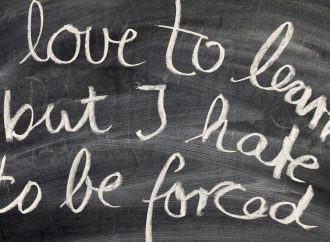 love to lear
but I hate
to be forced